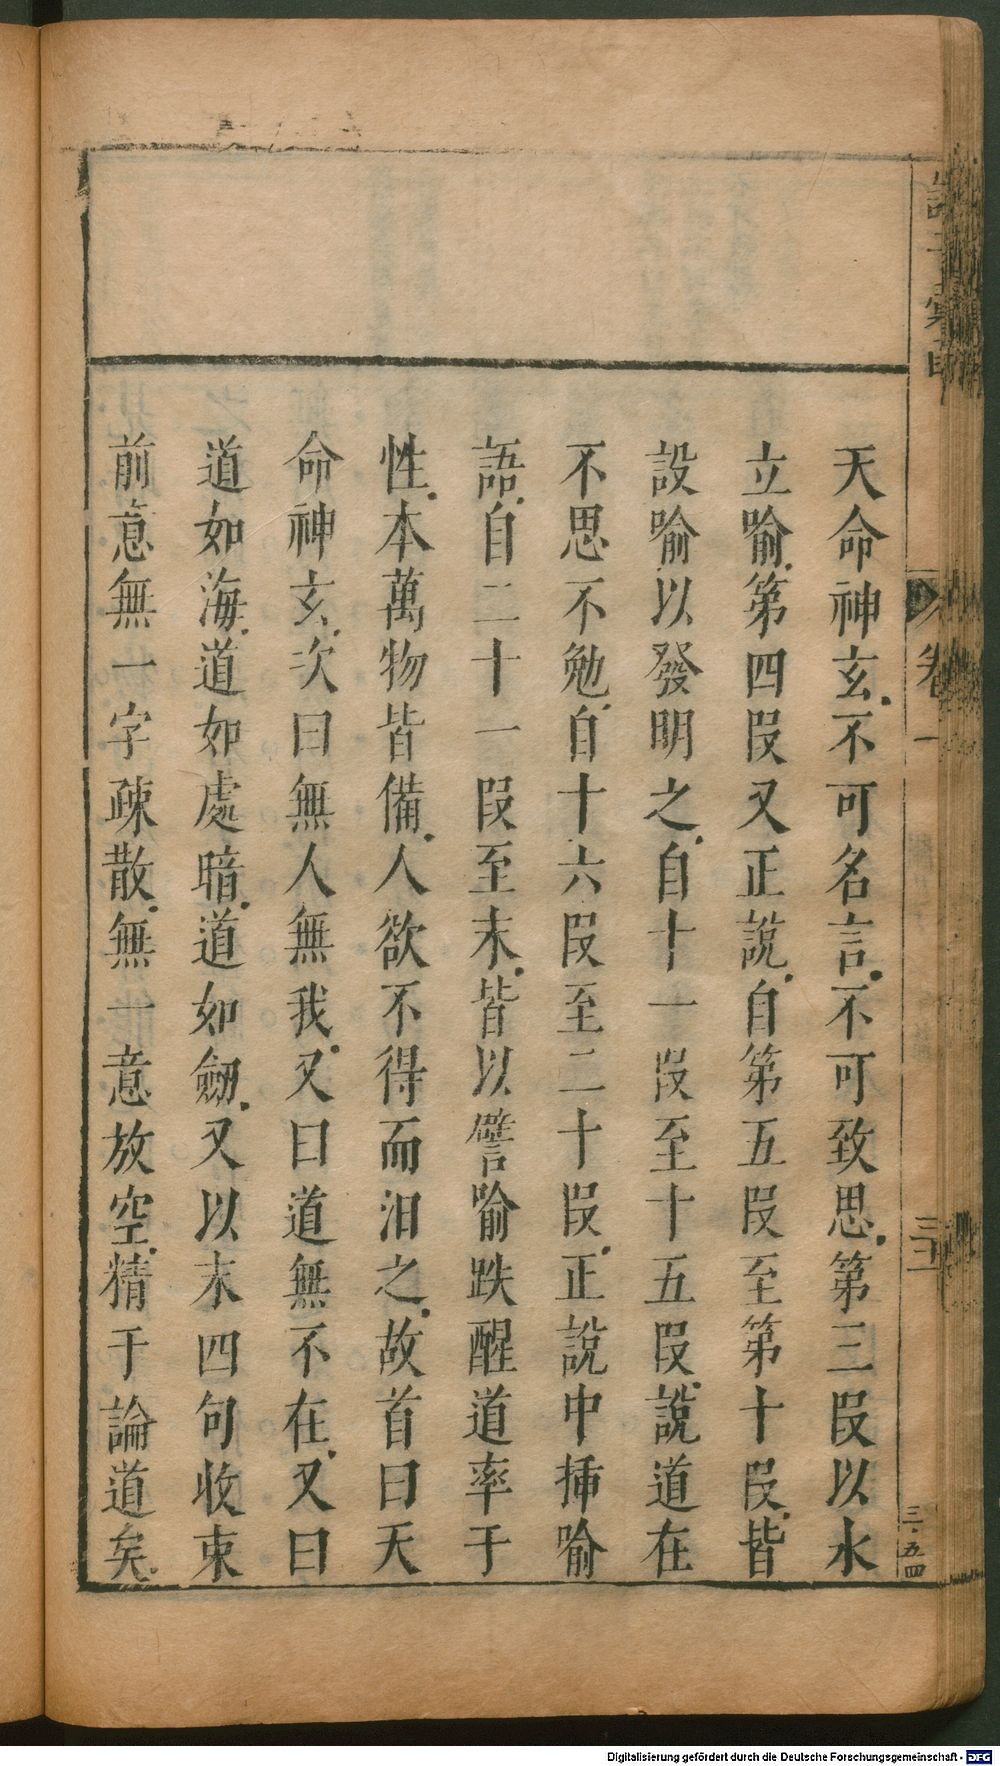 天命神玄不可名言不可致思第三段以水
立喻第四段又正說自第五段至第十段皆
設喻以發明之自十一段至十五段說道在
不思不勉自十六段至二十段正說中揷喻
語自二十一段至末皆以譬喻跌醒道率于
性本萬物皆備人欲不得而汩之故首曰天
命神玄次曰無人無我又曰道無不在又曰
道如海道如處暗道如劒又以末四句收束
前意無一字疎散無一意放空精于論道矣
卷一
三五四
Digitalisierung gefördert durch die Deutsche Forschungsgemeinschaft - DFG